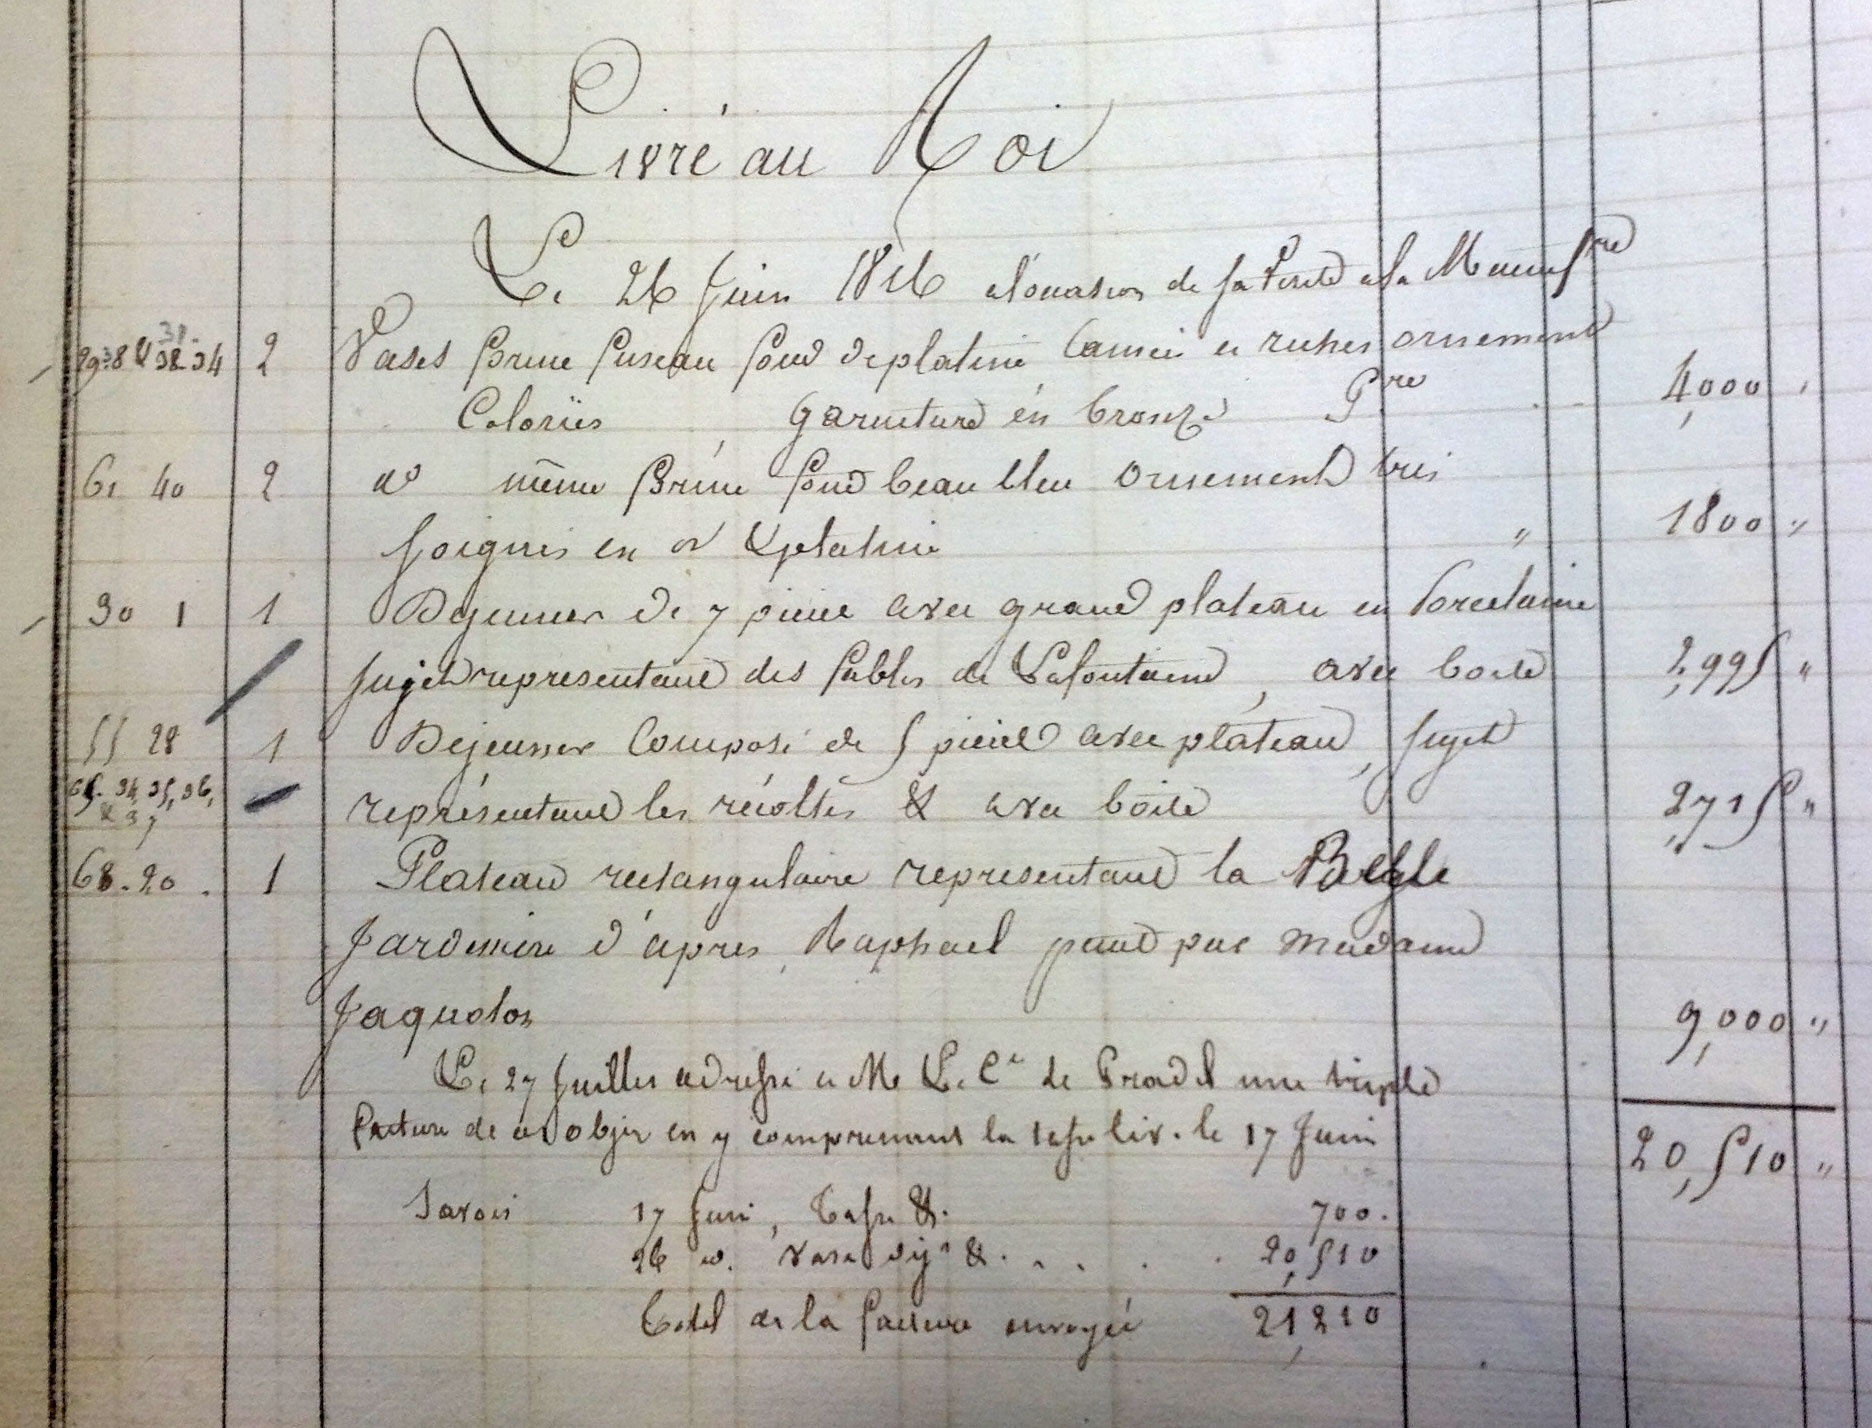 Livré au Roi
Le 26 Juin 1816 a l'occasion de sa visite a la Manuf.re
29.38 & 38.34 2 Vases forme fuseau fond de platine Camées et riches ornements
Coloriés, garniture en bronze Pre 4,000 "
61 40 2 do même forme fond beau bleu ornements très
soignés en or & platine " 1800 "
30 1 1 Dejeuner de 7 pieces avec grand plateau en Porcelaine
sujets representant des fables de Lafontaine, avec boite 2,995 "
55 28 1 Dejeuner composé de 5 pieces avec plateau, sujets
65. 34, 35, 36, & 37 représentant les récoltes & avec boite 2,715 "
68.20. 1 Plateau rectangulaire representant la Belle
Jardiniere d'après Raphael peint par Madame
Jaquotot 9,000 "
Le 27 Juillet adressé a Mr Le Cte de Pradel une triple
facture de ces objets en y comprenant la tasse liv. le 17 Juin 20,510 "
Savoir 17 Juin, Tasse &. 700.
26 do. Vases dejrs &. . . . . 20,510
Total de la facture envoyée 21,210